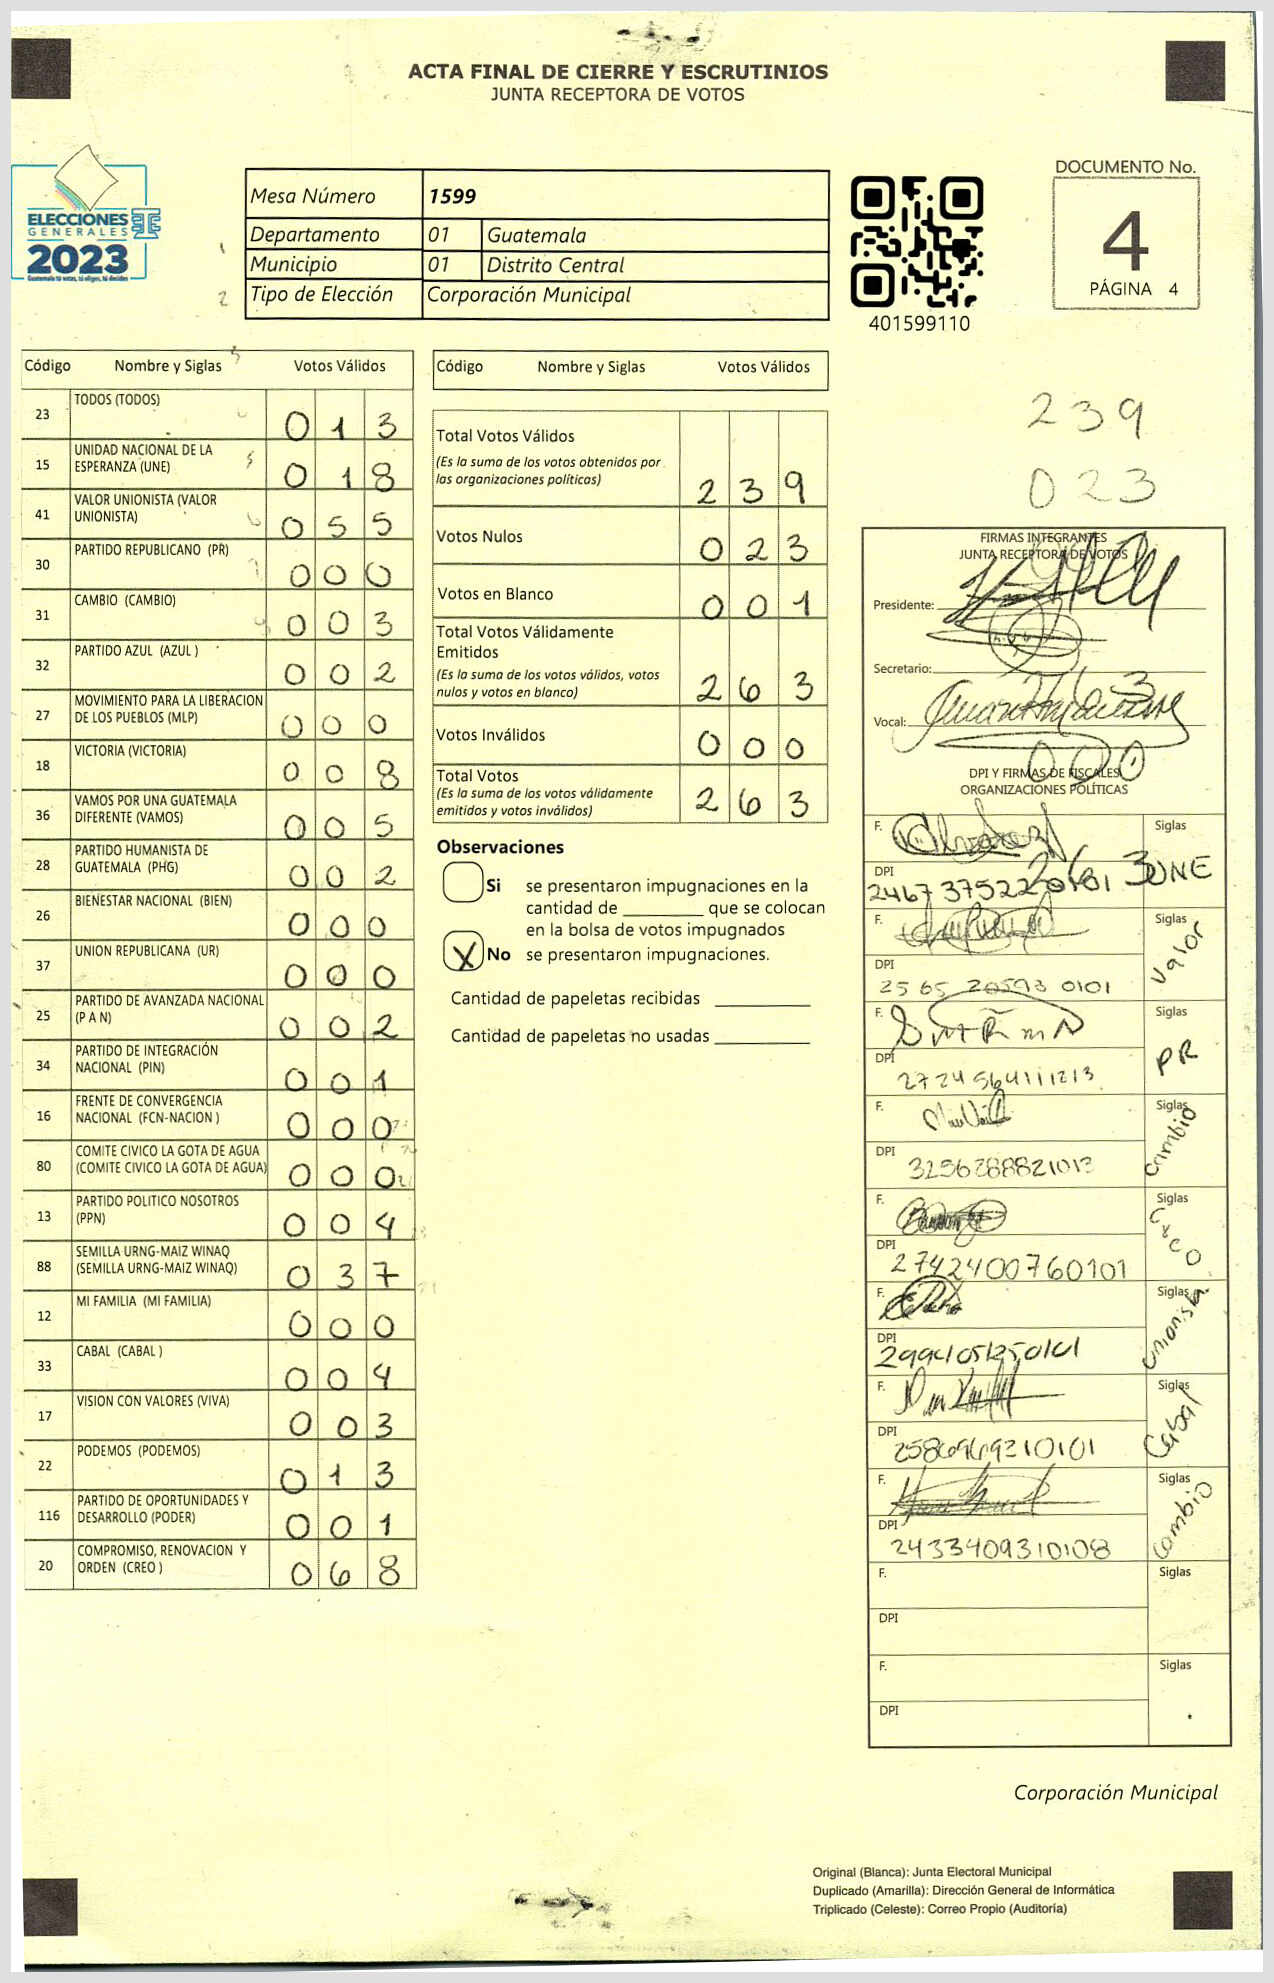 ACTA FINAL DE CIERRE Y ESCRUTINIOS
JUNTA RECEPTORA DE VOTOS
ELECCIONES
GENERALES
2023
Guatemala tú votas, tú eliges, tú decides
Mesa Número 1599
Departamento 01 Guatemala
Municipio 01 Distrito Central
Tipo de Elección Corporación Municipal
401599110
DOCUMENTO No.
4
PÁGINA 4
Código Nombre y Siglas Votos Válidos
23 TODOS (TODOS) 0 1 3
15 UNIDAD NACIONAL DE LA ESPERANZA (UNE) 0 1 8
41 VALOR UNIONISTA (VALOR UNIONISTA) 0 5 5
30 PARTIDO REPUBLICANO (PR) 0 0 0
31 CAMBIO (CAMBIO) 0 0 3
32 PARTIDO AZUL (AZUL ) 0 0 2
27 MOVIMIENTO PARA LA LIBERACION DE LOS PUEBLOS (MLP) 0 0 0
18 VICTORIA (VICTORIA) 0 0 8
36 VAMOS POR UNA GUATEMALA DIFERENTE (VAMOS) 0 0 5
28 PARTIDO HUMANISTA DE GUATEMALA (PHG) 0 0 2
26 BIENESTAR NACIONAL (BIEN) 0 0 0
37 UNION REPUBLICANA (UR) 0 0 0
25 PARTIDO DE AVANZADA NACIONAL (P A N) 0 0 2
34 PARTIDO DE INTEGRACIÓN NACIONAL (PIN) 0 0 1
16 FRENTE DE CONVERGENCIA NACIONAL (FCN-NACION ) 0 0 0
80 COMITE CIVICO LA GOTA DE AGUA (COMITE CIVICO LA GOTA DE AGUA) 0 0 0
13 PARTIDO POLITICO NOSOTROS (PPN) 0 0 4
88 SEMILLA URNG-MAIZ WINAQ (SEMILLA URNG-MAIZ WINAQ) 0 3 7
12 MI FAMILIA (MI FAMILIA) 0 0 0
33 CABAL (CABAL ) 0 0 4
17 VISION CON VALORES (VIVA) 0 0 3
22 PODEMOS (PODEMOS) 0 1 3
116 PARTIDO DE OPORTUNIDADES Y DESARROLLO (PODER) 0 0 1
20 COMPROMISO, RENOVACION Y ORDEN (CREO ) 0 6 8
Código Nombre y Siglas Votos Válidos
Total Votos Válidos
(Es la suma de los votos obtenidos por
las organizaciones políticas) 2 3 9
Votos Nulos 0 2 3
Votos en Blanco 0 0 1
Total Votos Válidamente
Emitidos
(Es la suma de los votos válidos, votos
nulos y votos en blanco) 2 6 3
Votos Inválidos 0 0 0
Total Votos
(Es la suma de los votos válidamente
emitidos y votos inválidos) 2 6 3
Observaciones
Si se presentaron impugnaciones en la
cantidad de ________ que se colocan
en la bolsa de votos impugnados
X No se presentaron impugnaciones.
Cantidad de papeletas recibidas
Cantidad de papeletas no usadas
239
023
FIRMAS INTEGRANTES
JUNTA RECEPTORA DE VOTOS
Presidente:
Secretario:
Vocal:
000
DPI Y FIRMAS DE FISCALES
ORGANIZACIONES POLÍTICAS
F. Siglas
263
DPI UNE
F. Siglas
Valor
DPI 2565 20593 0101
F. Siglas
PR
DPI 2724564111213
F. Siglas
Cambio
DPI 3256288821013
F. Siglas
DPI 2742400760101
F. Siglas
Unionista
DPI
F. Siglas
Cabal
DPI
F. Siglas
Cambio
DPI 2433409310108
F. Siglas
DPI
F. Siglas
DPI
Corporación Municipal
Original (Blanca): Junta Electoral Municipal
Duplicado (Amarilla): Dirección General de Informática
Triplicado (Celeste): Correo Propio (Auditoría)